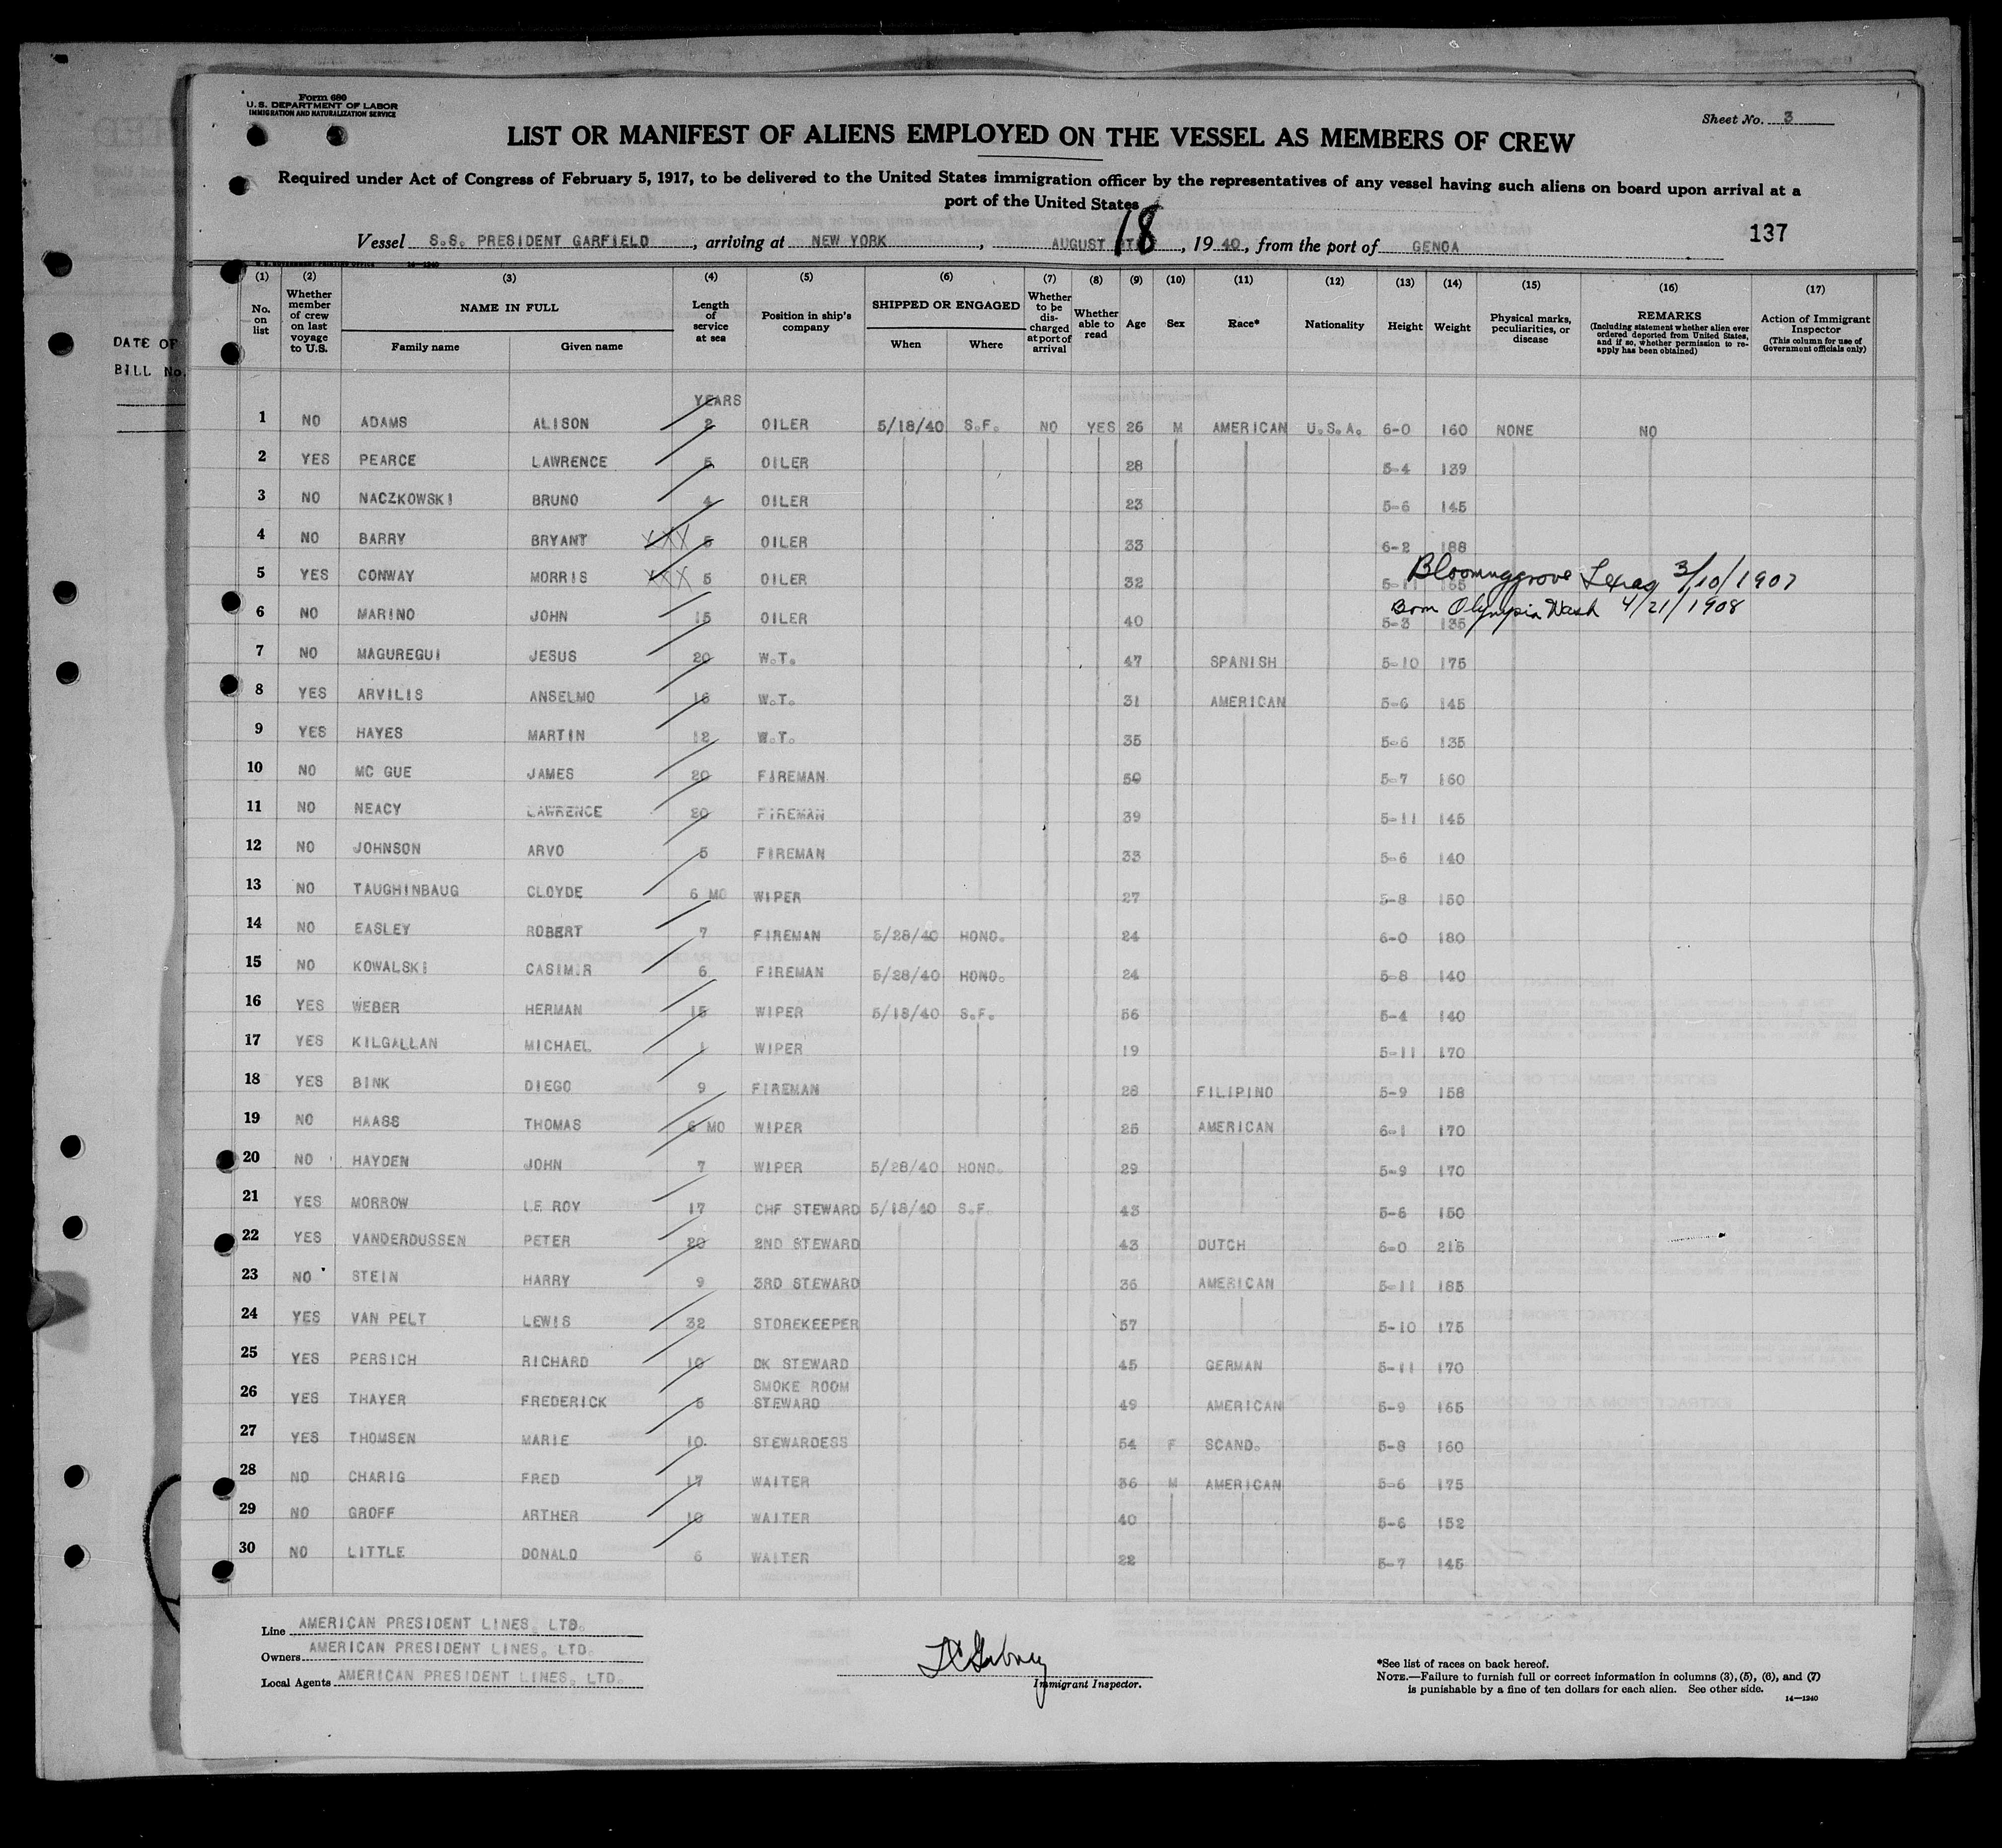 Form 680
U.S. DEPARTMENT OF LABOR
IMMIGRATION AND NATURALIZATION SERVICE
Sheet No. 3
LIST OR MANIFEST OF ALIENS EMPLOYED ON THE VESSEL AS MEMBERS OF CREW
Required under Act of Congress of February 5, 1917, to be delivered to the United States immigration officer by the representatives of any vessel having such aliens on board upon arrival at a
port of the United States
137
Vessel S.S. PRESIDENT GARFIELD, arriving at NEW YORK, AUGUST 18, 1940, from the port of GENOA
DATE OF
BILL No.
(1) (2) (3) (4) (5) (6) (7) (8) (9) (10) (11) (12) (13) (14) (15) (16) (17)
No. on list
Whether member of crew on last voyage to U.S.
NAME IN FULL
Family name Given name
Length of service at sea
Position in ship's company
SHIPPED OR ENGAGED
When Where
Whether to be discharged at port of arrival
Whether able to read
Age
Sex
Race*
Nationality
Height
Weight
Physical marks, peculiarities, or disease
REMARKS
(Including statement whether alien ever ordered deported from United States, and if so, whether permission to re-apply has been obtained)
Action of Immigrant Inspector
(This column for use of Government officials only)
YEARS
1 NO ADAMS ALISON 2 OILER 5/18/40 S.F. NO YES 26 M AMERICAN U.S.A. 6-0 160 NONE NO
2 YES PEARCE LAWRENCE 5 OILER 28 5-4 139
3 NO NACZKOWSKI BRUNO 4 OILER 23 5-6 145
4 NO BARRY BRYANT XXX 5 OILER 33 6-2 188
5 YES CONWAY MORRIS XXX 5 OILER 32 5-11 165 Bloominggrove Texas 3/10/1907
6 NO MARINO JOHN 15 OILER 40 5-3 135 Born Olympia Wash 4/21/1908
7 NO MAGUREGUI JESUS 20 W.T. 47 SPANISH 5-10 175
8 YES ARVILIS ANSELMO 16 W.T. 31 AMERICAN 5-6 145
9 YES HAYES MARTIN 12 W.T. 35 5-6 135
10 NO MC GUE JAMES 20 FIREMAN 50 5-7 160
11 NO NEACY LAWRENCE 20 FIREMAN 39 5-11 145
12 NO JOHNSON ARVO 5 FIREMAN 33 5-6 140
13 NO TAUGHINBAUG CLOYDE 6 MO WIPER 27 5-8 150
14 NO EASLEY ROBERT 7 FIREMAN 5/28/40 HONO. 24 6-0 180
15 NO KOWALSKI CASIMIR 6 FIREMAN 5/28/40 HONO. 24 5-8 140
16 YES WEBER HERMAN 15 WIPER 5/18/40 S.F. 56 5-4 140
17 YES KILGALLAN MICHAEL 1 WIPER 19 5-11 170
18 YES BINK DIEGO 9 FIREMAN 28 FILIPINO 5-9 158
19 NO HAASS THOMAS 6 MO WIPER 25 AMERICAN 6-1 170
20 NO HAYDEN JOHN 7 WIPER 5/28/40 HONO. 29 5-9 170
21 YES MORROW LE ROY 17 CHF STEWARD 5/18/40 S.F. 43 5-6 150
22 YES VANDERDUSSEN PETER 20 2ND STEWARD 43 DUTCH 6-0 215
23 NO STEIN HARRY 9 3RD STEWARD 36 AMERICAN 5-11 185
24 YES VAN PELT LEWIS 32 STOREKEEPER 57 5-10 175
25 YES PERSICH RICHARD 10 DK STEWARD 45 GERMAN 5-11 170
26 YES THAYER FREDERICK 5 SMOKE ROOM STEWARD 49 AMERICAN 5-9 165
27 YES THOMSEN MARIE 10 STEWARDESS 54 F SCAND. 5-8 160
28 NO CHARIG FRED 17 WAITER 36 M AMERICAN 5-6 175
29 NO GROFF ARTHER 10 WAITER 40 5-6 152
30 NO LITTLE DONALD 6 WAITER 22 5-7 145
Line AMERICAN PRESIDENT LINES, LTD.
Owners AMERICAN PRESIDENT LINES, LTD.
Local Agents AMERICAN PRESIDENT LINES, LTD.
Immigrant Inspector.
*See list of races on back hereof.
NOTE.—Failure to furnish full or correct information in columns (3), (5), (6), and (7)
is punishable by a fine of ten dollars for each alien. See other side.
14—1240